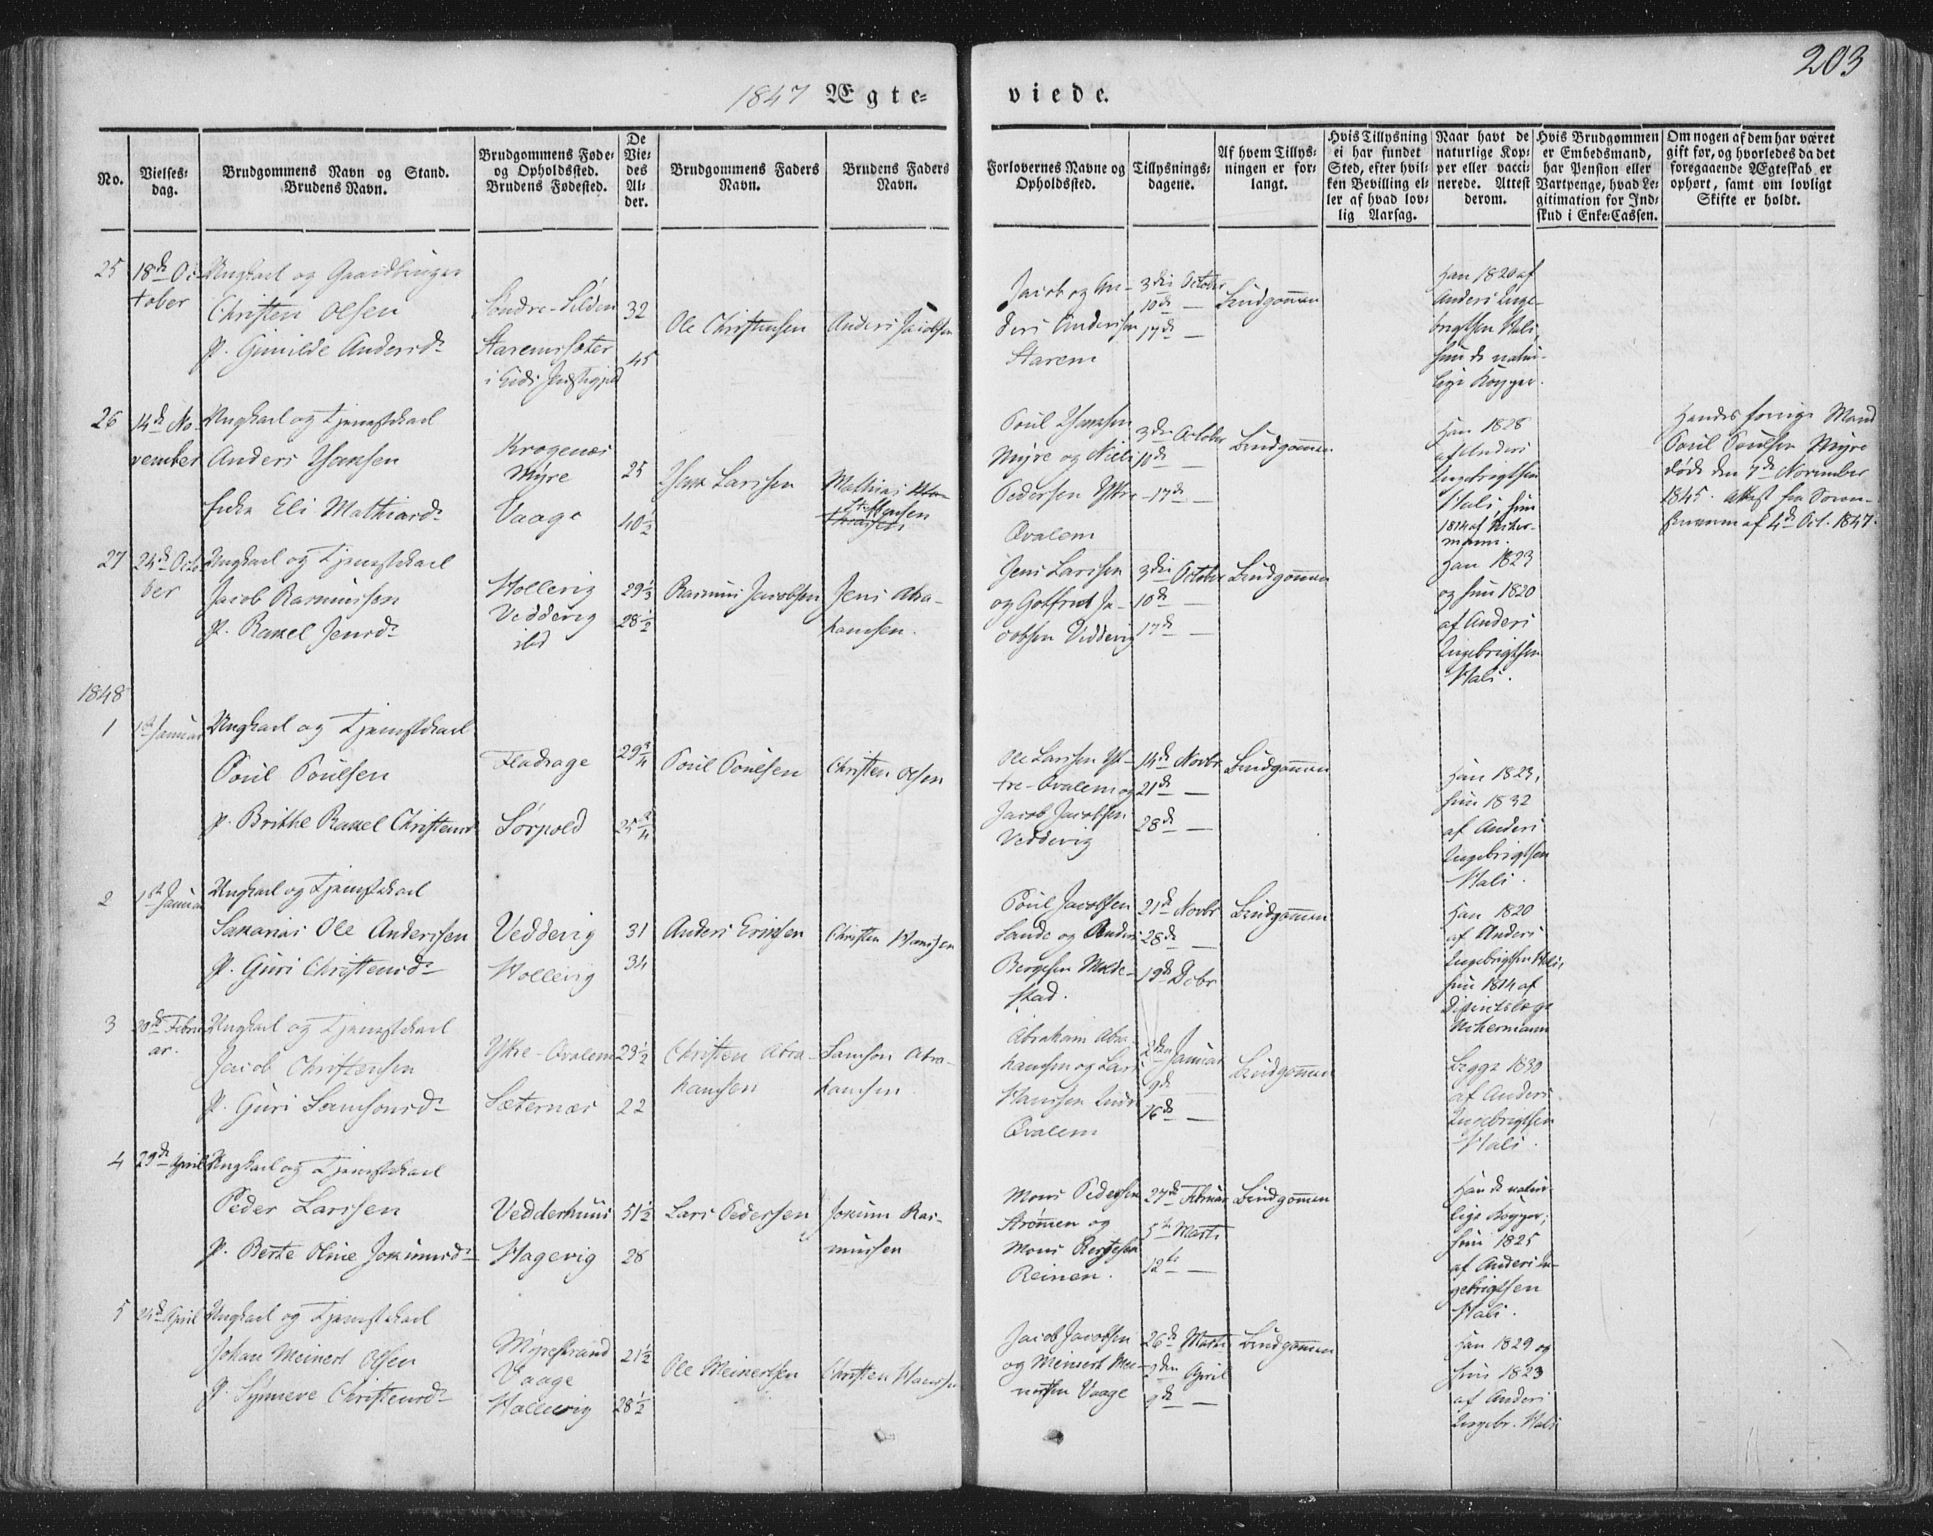 203
1847 Ægte-
viede.
No.
Vielses-
dag.
Brudgommens Navn og Stand.
Brudens Navn.
Brudgommens Føde-
og Opholdssted.
Brudens Fødested.
De
Vie-
des
Al-
der.
Brudgommens Faders
Navn.
Brudens Faders
Navn.
Forlovernes Navne og
Opholdssted.
Tillysnings-
dagene.
Af hvem Tillys-
ningen er for-
langt.
Hvis Tillysning
ei har fundet
Sted, efter hvil-
ken Bevilling el-
ler af hvad lov-
lig Aarsag.
Naar havt de
naturlige Kop-
per eller vacci-
nerede. Attest
derom.
Hvis Brudgommen
er Embedsmand,
har Pension eller
Vartpenge, hvad Le-
gitimation for Ind-
skud i Enke-Cassen.
Om nogen af dem har været
gift før, og hvorledes da det
foregaaende Ægteskab er
ophørt, samt om lovligt
Skifte er holdt.
25
18de Oc-
tober
Ungkarl og Gaardbruger
Christen Olsen
P. Gunilde Andersd.
Søndre-Silden
Staremssæter
32
45
Ole Christensen
Anders Jacobsen
Jacob og An-
ders Andersen
Starem
3die October
10de —
17de —
Brudgommen
Han 1820 af
Anders Inge-
brigtsen Hals,
hun de natur-
lige Kopper.
26
14de No-
vember
Ungkarl og Tjenestekarl
Anders Isaksen
Enke Eli Mathiasd.
Krogenæs
Myre
Vaage
25
40½
Isak Larssen
Mathias
Poul Isaksen
Myre og Niels
Pedersen Ytre
Qvalem
3die October
10de —
17de —
Brudgommen
Han 1828
af Anders
Ingebrigtsen
Hals, hun
1814 af Acker-
mann.
Hendes forrige Mand
Poul Poulsen Myre
døde den 7de November
1845. Attest fra Soren-
skriveren af 4de Oct. 1847.
27
24de Octo-
ber
Ungkarl og Tjenestekarl
Jacob Rasmussen
P. Rakel Jensd.
Hollevig
Veddevig
ibd
29⅓
28½
Rasmus Jacobsen
Jens Abra-
hamsen.
Jens Larssen
og Gotfred Ja-
cobsen Veddevig
3die October
10de —
17de —
Brudgommen
Han 1823
og hun 1820
af Anders
Ingebrigtsen
Hals.
1848
1
1ste Januar
Ungkarl og Tjenestekarl
Poul Poulsen
P. Brithe Rakel Christensd.
Fladrage
Sørpold
29¾
25¾
Poul Poulsen
Christen Olsen
Ole Larssen Yt-
tre-Qvalem og
Jacob Jacobsen
Veddevig
14de Novbr
21de —
28de —
Brudgommen
Han 1823,
hun 1832
af Anders
Ingebrigtsen
Hals.
2
1ste Januar
Ungkarl og Tjenestekarl
Sakarias Ole Anderssen
P. Guri Christensd.
Veddevig
Hollevig
31
34
Anders Erikssen
Christen Hanssen
Poul Jacobsen
Sande og Anders
Bergesen Molde-
stad.
21de Novbr
28de —
19de Dcbr
Brudgommen
Han 1820
af Anders
Ingebrigtsen Hals,
hun 1814 af
Districtslæge
Ackermann
3
20de Febru-
ar.
Ungkarl og Tjenestekarl
Jacob Christensen
P. Guri Samsonsd.
Yttre-Qvalem
Sæternæs
23½
22
Christen Abra-
hamsen
Samson Abra-
hamsen
Abraham Abra-
hamsen og Lars
Hanssen Indre
Qvalem
2den Januar
9de
16de —
Brudgommen
Begge 1830
af Anders
Ingebrigtsen
Hals.
4
29de April
Ungkarl og Tjenestekarl
Peder Larssen
P. Berte Oline Jokumsd.
Vedderhuus
Hagevig
51½
28
Lars Pedersen
Jokum Ras-
mussen
Mons Pedersen
Strømmen og
Mons Bergesen
Reinen.
27de Februar
5te Marts
12te —
Brudgommen
Han de natur-
lige Kopper;
hun 1825
af Anders In-
gebrigtsen
Hals.
5
24de April
Ungkarl og Tjenestekarl
Johan Meinert Olsen
P. Synneve Christensd.
Myrestrand
Vaage
Hallevig
21½
28½
Ole Meinertsen
Christen Hanssen
Jacob Jacobsen
og Meinert Mei-
nertsen Vaage
26de Marts
2den April
9de —
Brudgommen
Han 1829 og
hun 1823
af Anders
Ingebr. Hals